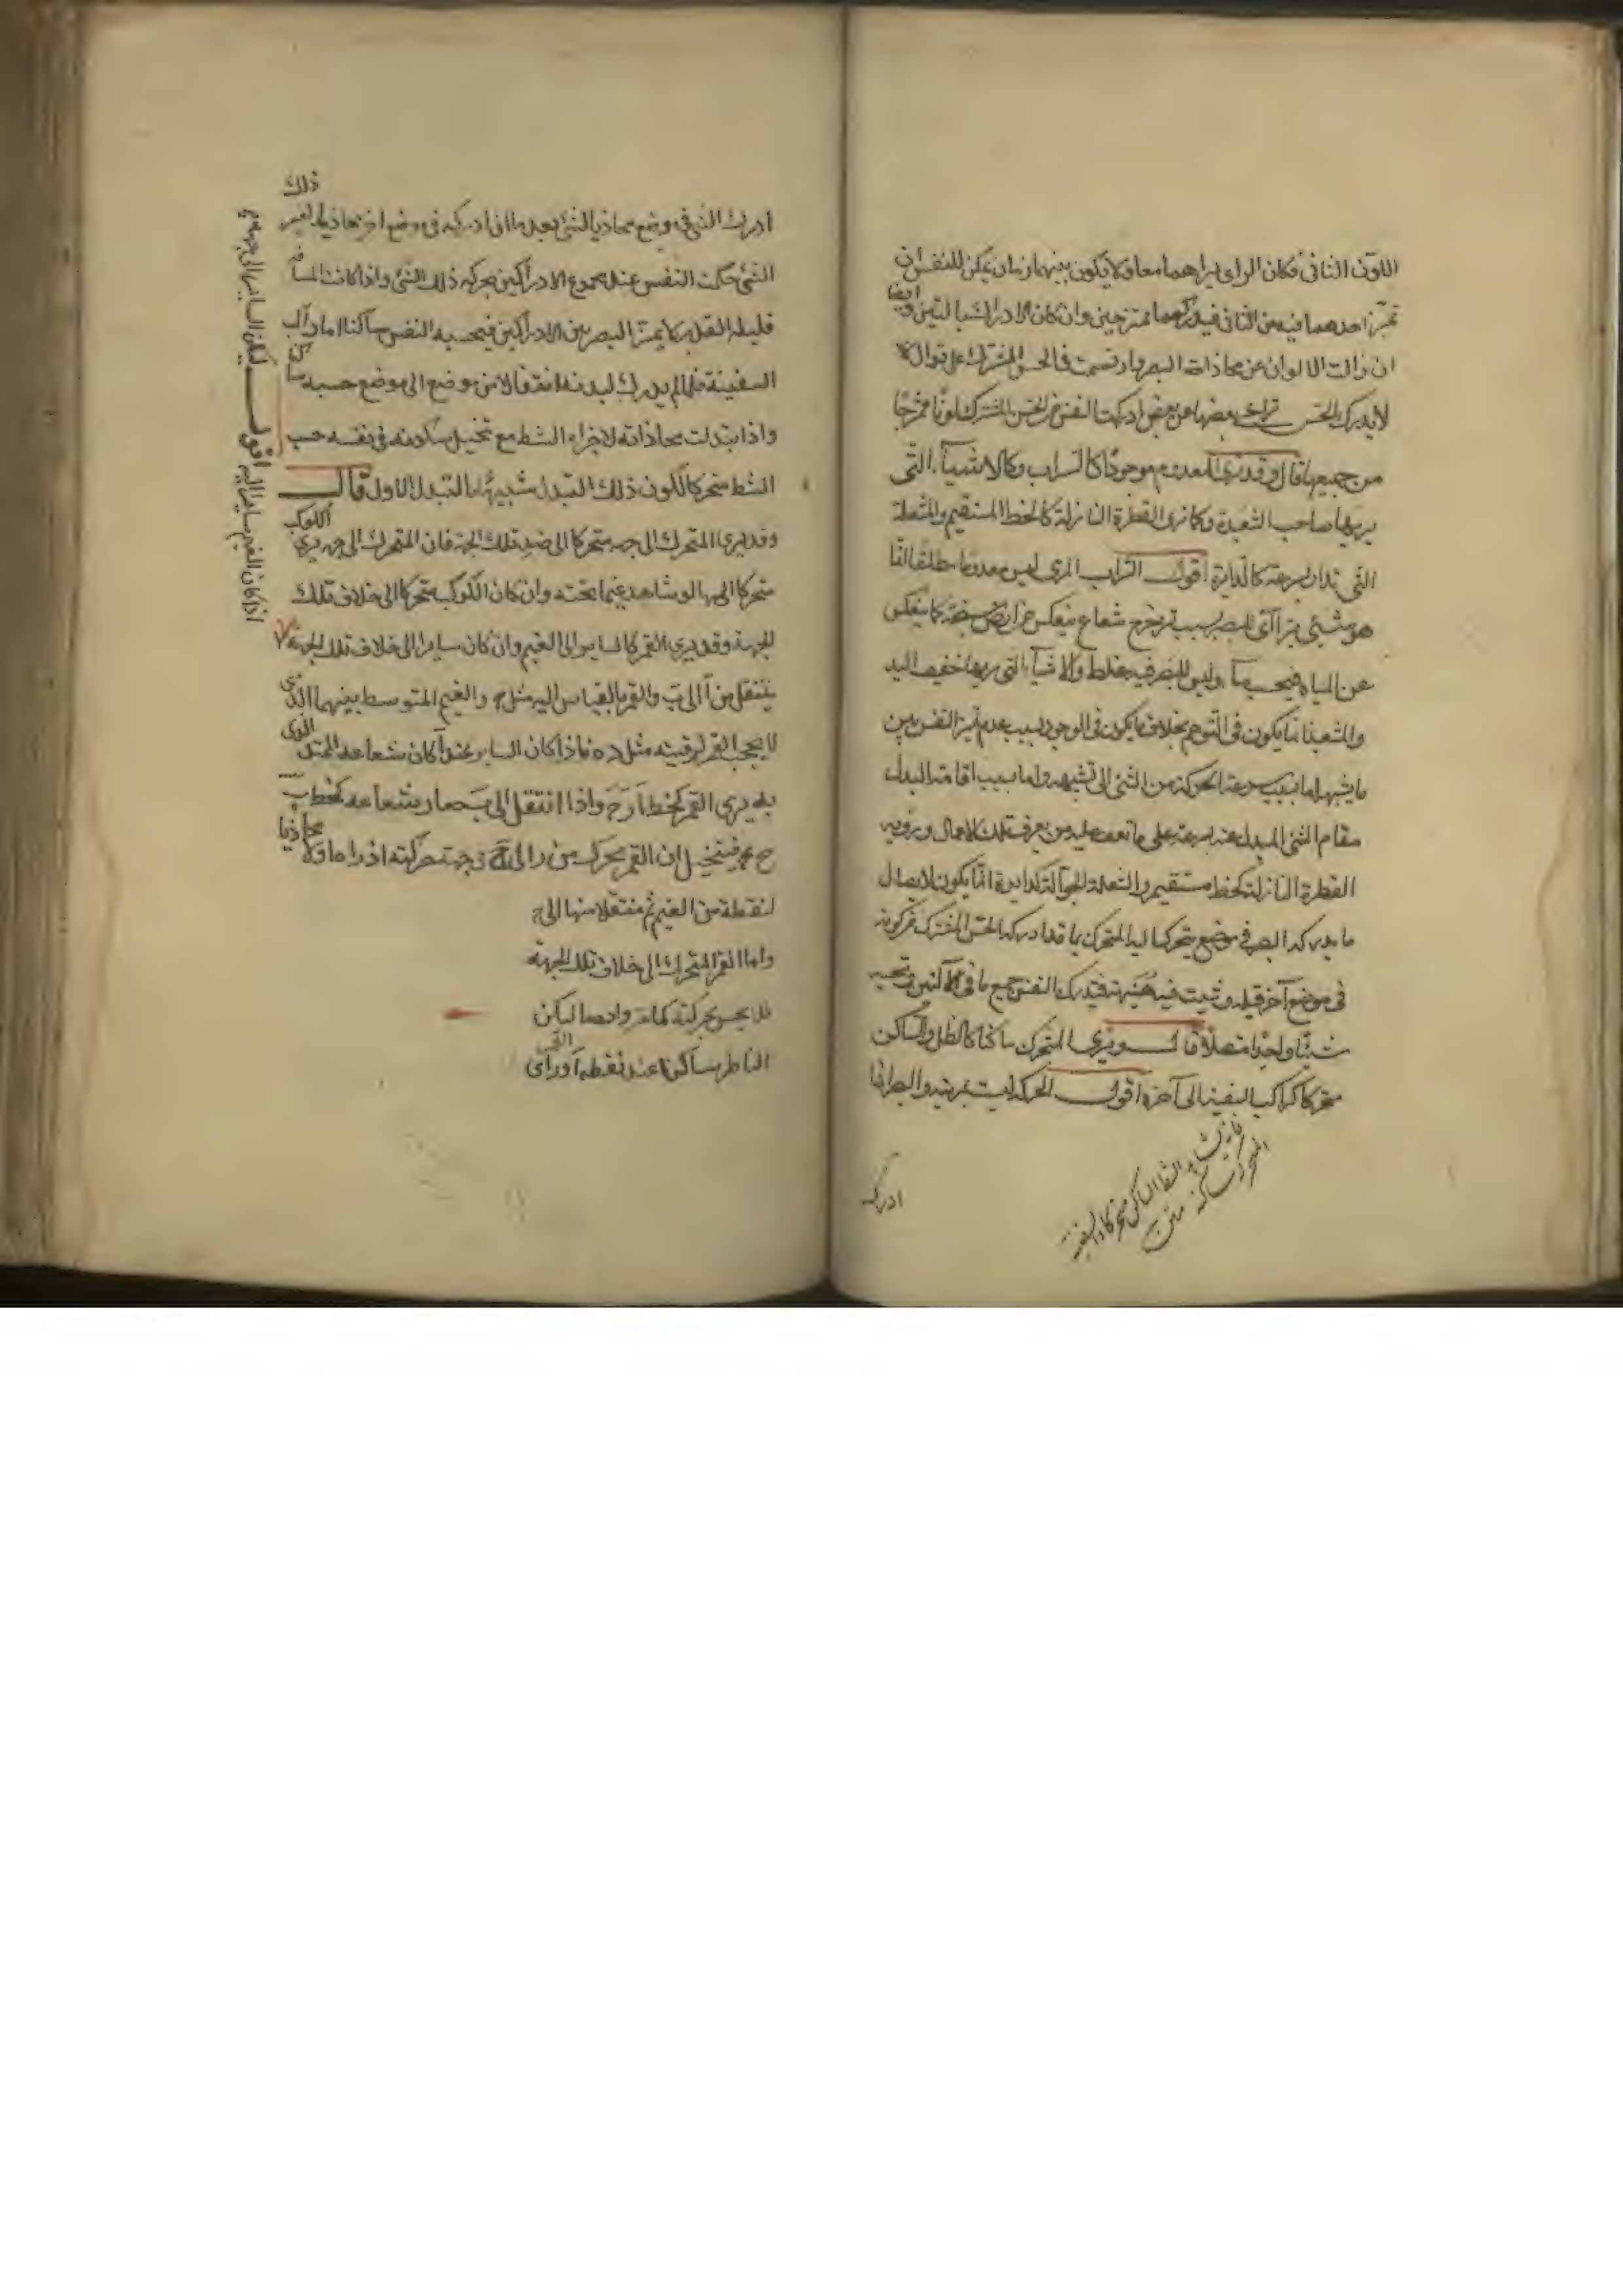 اللون الثانى فكان الرائى يراهما معا ولا يكون بينهما زمان يمكن للنفس ان
تميز احدهما فيه من الثانى فيدركهما ممتزجين وان كان الادراك بالتين وايضا
ان زالت الالوان عن محاذات البصر وارتسمت فى الحس المشترك على توال لا
لا يدرك الحس تراخى بعضها عن بعض ادركت النفس من الحس المشترك لونا ممتزجا
من جميعها قال وقد نرى المعدوم موجودا كالسراب وكالاشياء التى
يريها صاحب الشعبدة وكما نرى القطرة النازلة كالخط المستقيم والشعلة
التى تدار بسرعة كالدايرة اقول السراب المرى ليس معدوما مطلقا انما
هو شئ يتراآى للبصر بسبب ترجرج شعاع ينعكس عن ارض سبخة كما ينعكس
عن المياه فيحسب ماء وليس للبصر فيه غلط والاشياء التى يريها خفيف اليد
والمشعبذ انما يكون فى التوهم بخلاف ما يكون فى الوجود بسبب عدم تميز النفس بين
ما يشبهه اما بسبب سرعة الحركة من الشئ الى شبهه واما بسبب اقامة البدل
مقام الشئ المبدل عنه بسرعة على ما تقف عليه من يعرف تلك الاعمال ورؤية
القطرة النازلة كخط مستقيم والشعلة الجوالة كدايرة انما يكون لاتصال
ما يدركه البصر فى موضع يتحرك اليه المتحرك بما قد ادركه الحس المشترك من كونه
فى موضع آخر قبله وثبت فيه هنيهة فيدرك النفس جميع ما فى الآلتين وتحسبه
شيئا واحدا متصلا قال ويرى المتحرك ساكنا كالظل والساكن
متحركا كراكب السفينة الى آخره اقول الحركة ليست بمرئية والبصر اذا
ادرك
ذلك
ادرك الشئ فى وضع محاذيا لشئ بعد ما ادركه فى وضع آخر محاذيا لغير
الشئ حكمت النفس عند مجموع الادراكين بحركة ذلك الشئ واذا كانت المسافة
قليلة القدر لا يميز البصر بين الادراكين فيحسبه النفس ساكنا اما راكب
السفينة فلما لم يدرك لبدنه انتقالا من موضع الى موضع حسبه ساكنا
واذا تبدلت محاذاته لاجزاء الشط مع تخيل سكونه فى نفسه حسب
الشط متحركا لكون ذلك التبدل شبيها بالتبدل الاول قال
وقد يرى المتحرك الى جهة متحركا الى ضد تلك الجهة فان المتحرك الى جهة يرى الكوكب
متحركا اليها لو شاهد غيما تحته وان كان الكوكب متحركا الى خلاف تلك
الجهة وقد يرى القمر كالساير الى الغيم وان كان سايرا الى خلاف تلك الجهة
اذا كان الغيم سايرا اليه اقول ليكن الساير الى جهة
ينتقل من آ الى ب والقمر بالقياس اليه مثل ج والغيم المتوسط بينهما الذى
لا يحجب القمر لرقته مثل د ه فاذا كان الساير عند آ كان شعاعه الممتد الذى
به يرى القمر كخط آ ر ج واذا انتقل الى ب صار شعاعه كخط ب
ح ج فيتخيل ان القمر يحرك من ر الى ح فى جهة حركته اذ رآه اولا محاذيا
لنقطة من الغيم ثم منتقلا منها الى ح
واما القمر المتحرك الى خلاف تلك الجهة
فلا يحس بحركته كما مر وايضا ليكن
الناظر ساكنا عند نقطة آ ورأى القمر